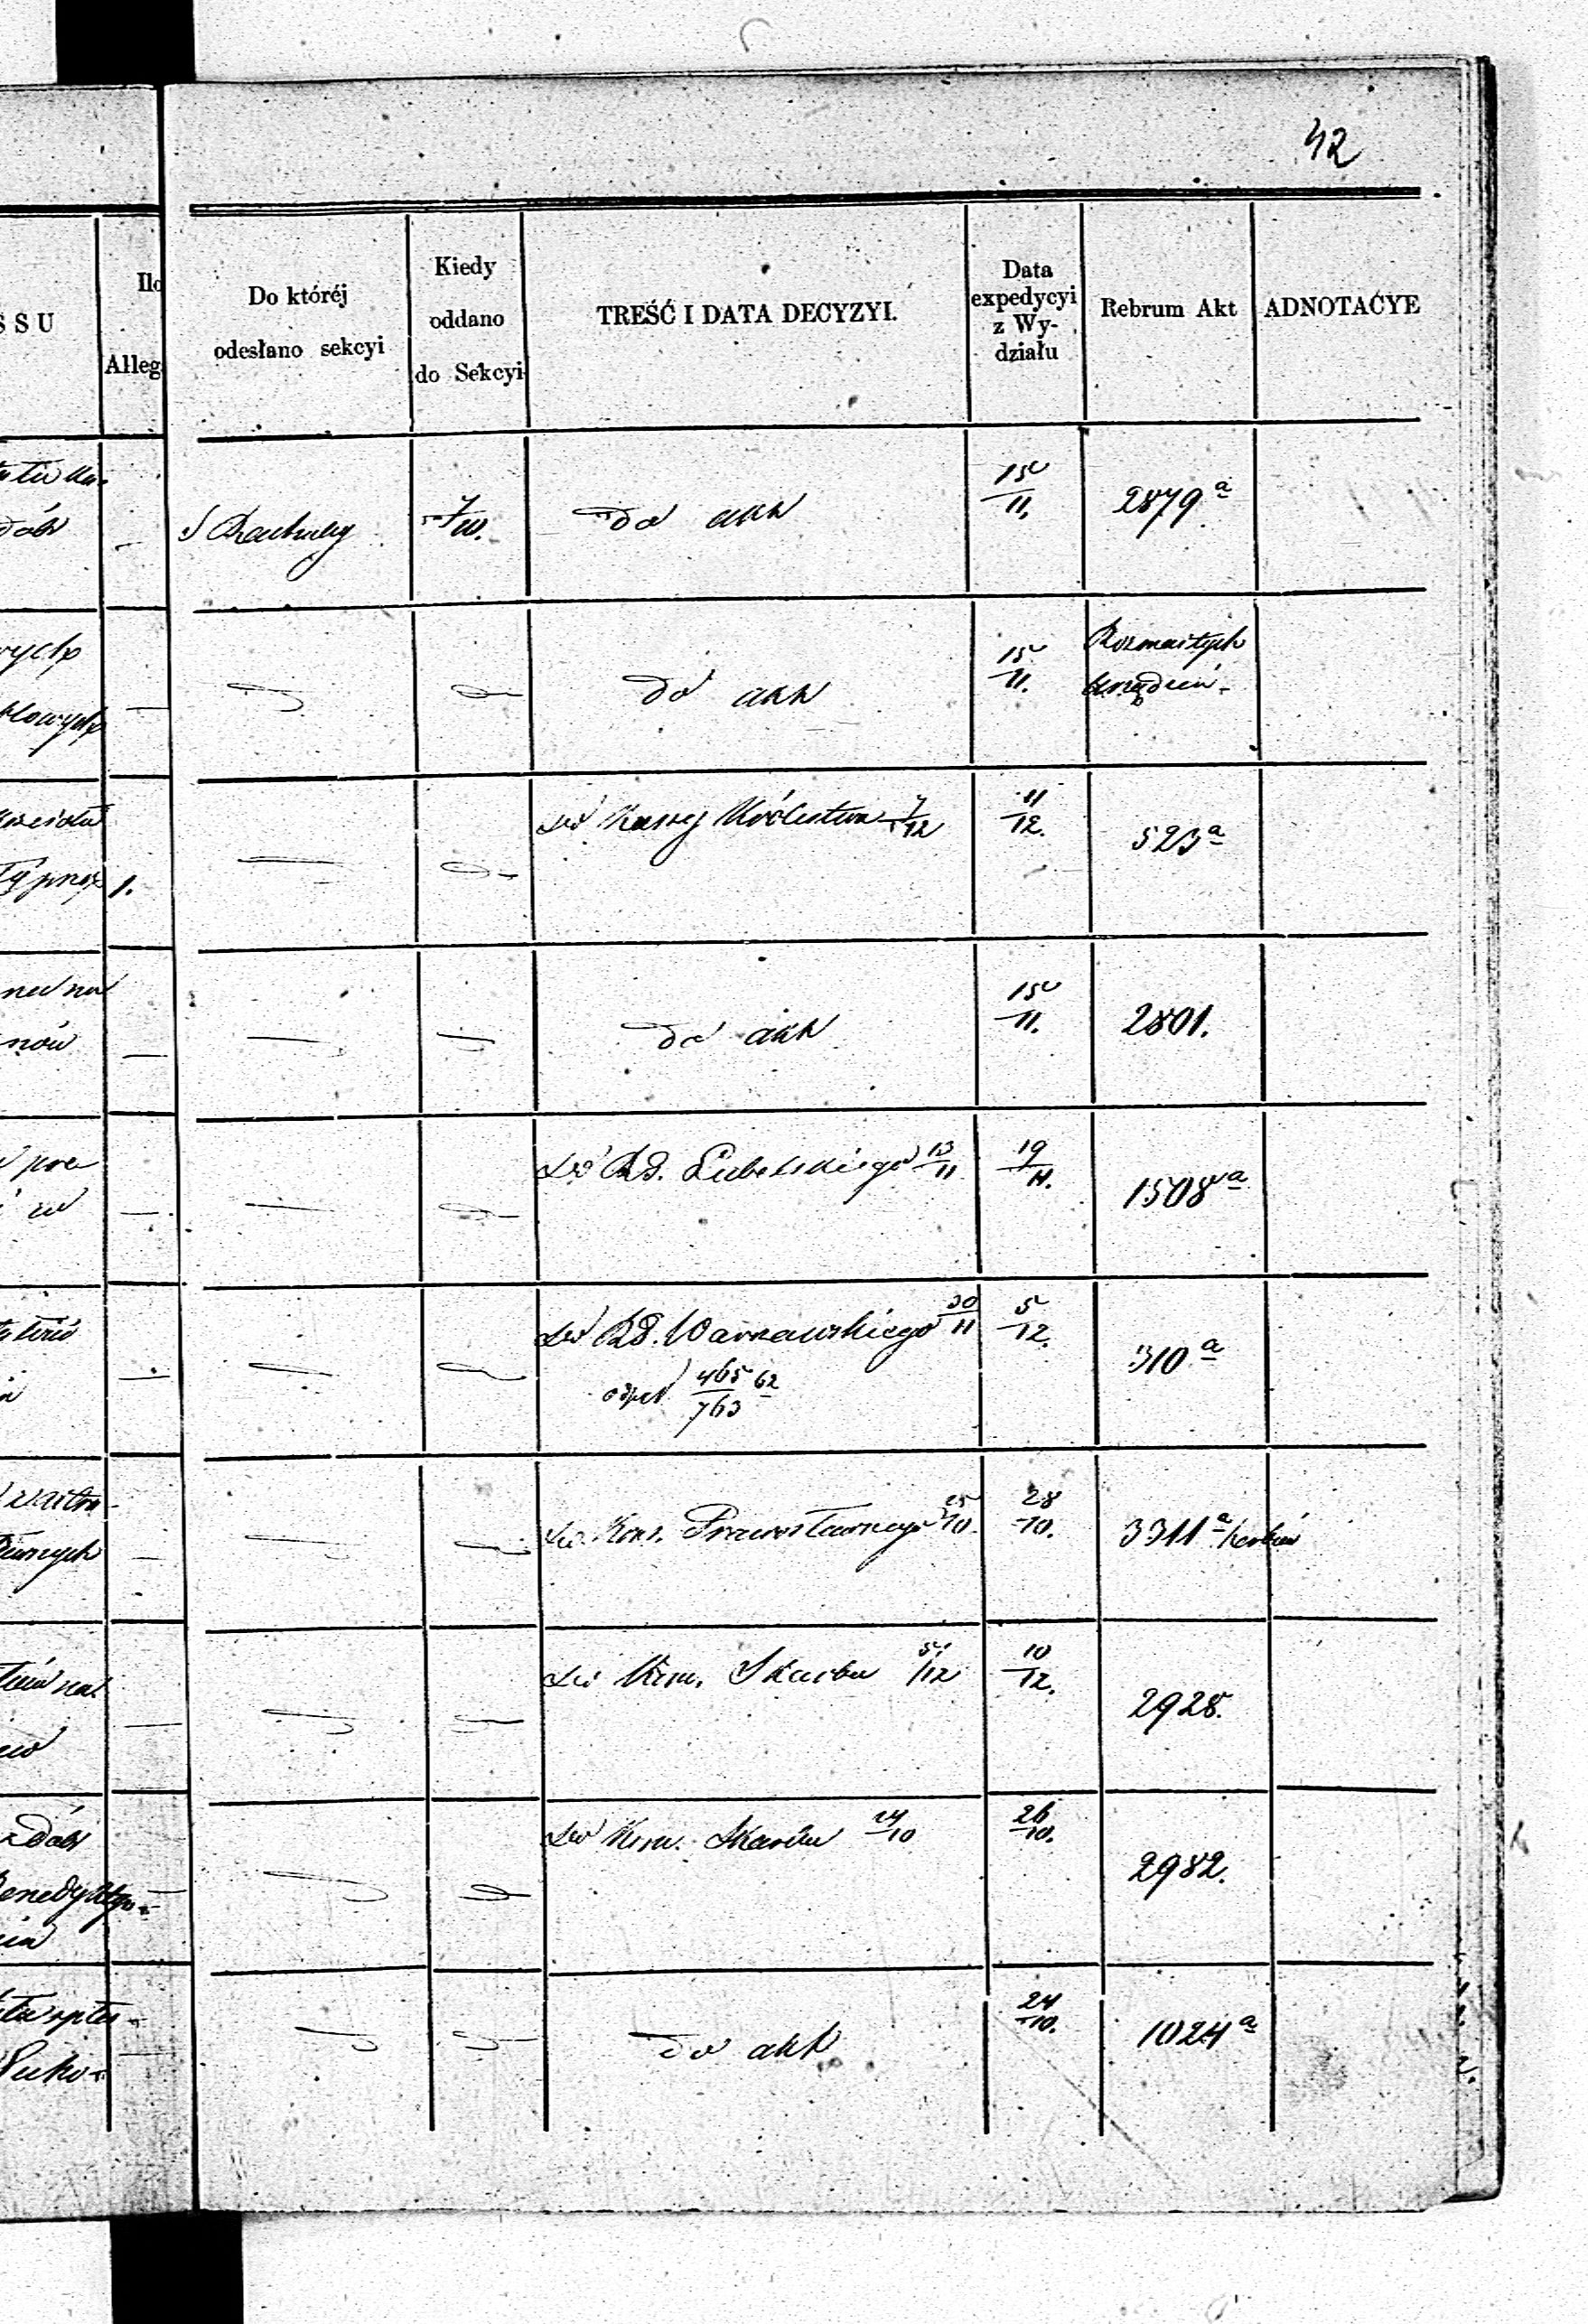 42
SSU
Ilo
Alleg.
Do któréj
odesłano sekcyi
Kiedy
oddano
do Sekcyi
TREŚĆ I DATA DECYZYI.
Data
expedycyi
z Wy-
działu
Rebrum Akt
ADNOTACYE
dóbr
7/10.
do akt
15/11.
2879 a
wych
do akt
15/11.
Rozmaitych
urządzeń.
1.
Do Kassy Królestwa 7/12
11/12.
523 a
nów
do akt
15/11.
2801.
w
Do RG. Lubelskiego 13/11
19/11.
1508 a
Do RG. Warszawskiego 30/11
465/763 62
5/12.
310 a
Do Kons. Prawosławnego 25/10.
28/10.
3311 a
Do Kom. Skarbu 5/12
10/12.
2928.
dóbr
Do Kom. Skarbu 24/10
26/10.
2982.
do akt
24/10.
1024 a